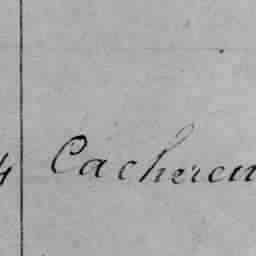 4 Cachereu